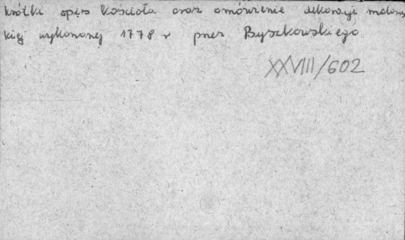 krótki opis kościoła oraz omówienie dekoracji malars
kiej wykonanej 1778 r przez Byszkowskiego
XXVIII/602